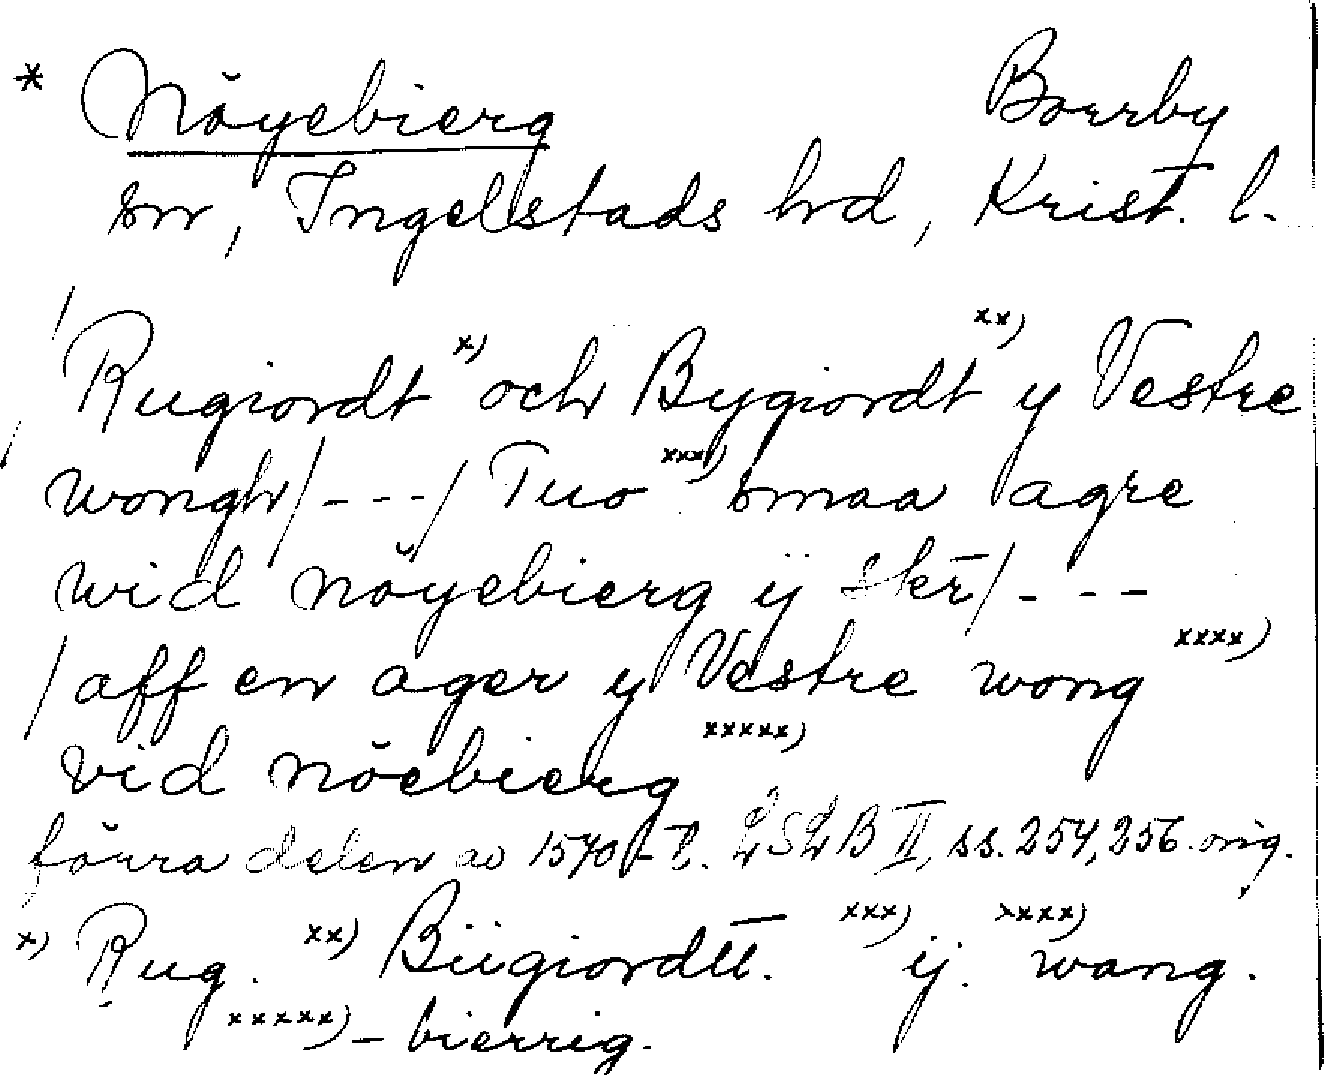 * Nöyebierg Borrby
sn, Ingelstads hd, Krist. l.
/Rugiordt x) och Bygiordt xx) y Vestre
wongh/---/ Tuo xxx) smaa agre
wid nöyebierg ÿ sker̄/---
/aff en ager y Vestre wong xxxx)
vid nöebierg xxxxx)
förra delen av 1540-t. LSLB II, ss. 254, 256. orig.
x) Rug. xx) Biigiordtt. xxx) ij. xxxx) wang.
xxxxx) -bierrig.